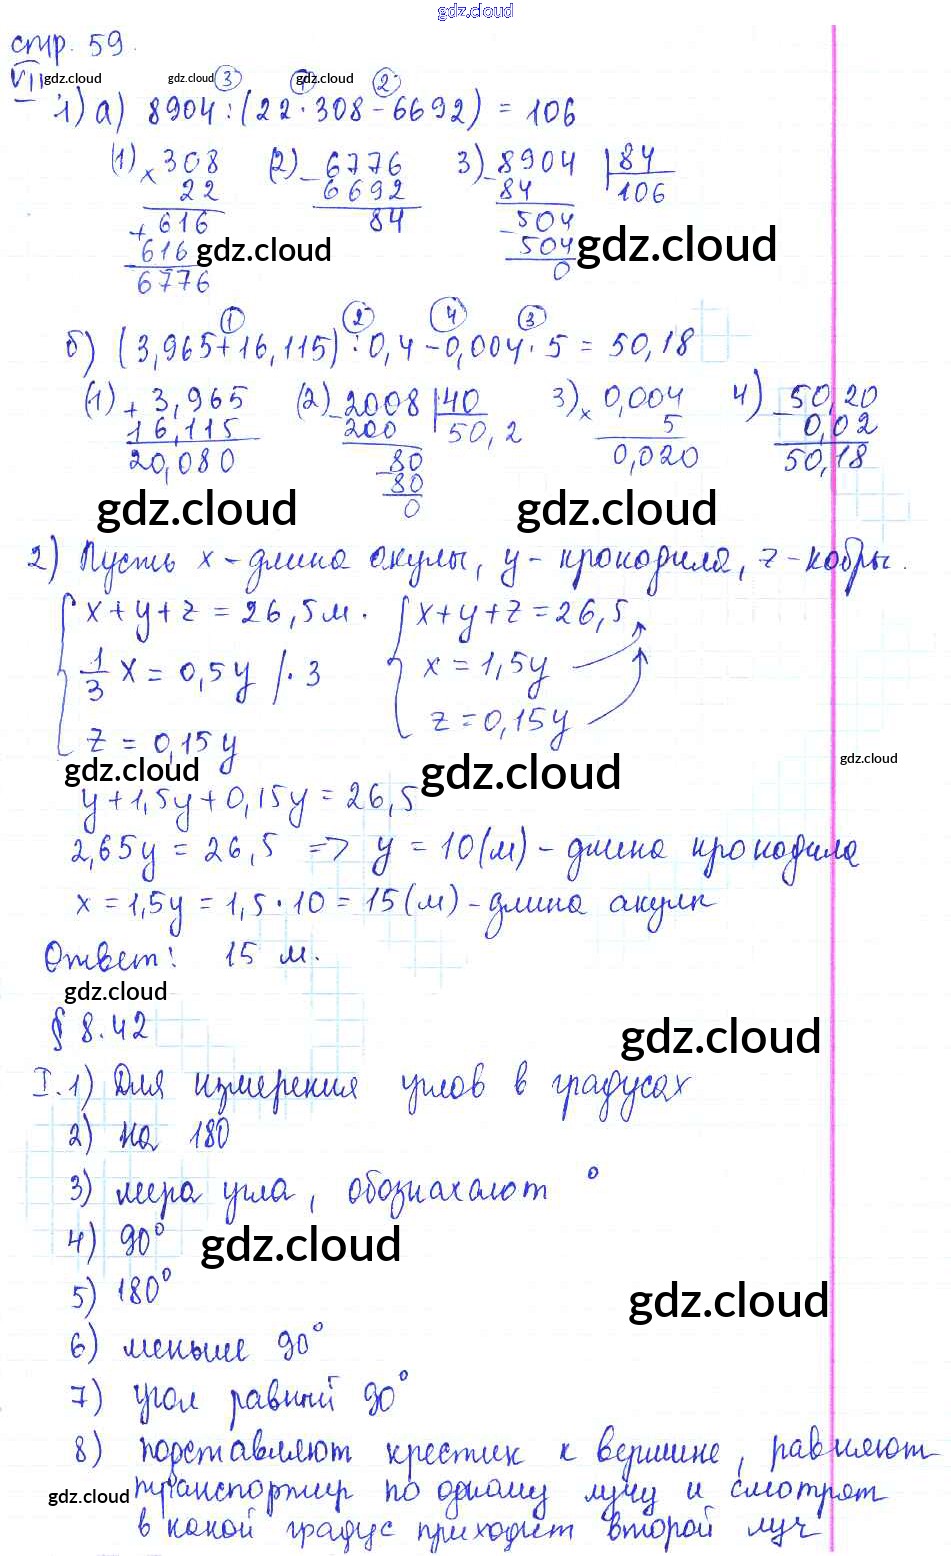 gdz.cloud
стр. 59.
VII gdz.cloud gdz.cloud 3 1 gdz.cloud 2
1) а) 8904 : (22 · 308 - 6692) = 106
(1) × 308 (2) - 6776 3) - 8904 | 84
22 6692 84 106
+ 616 84 - 504
616 gdz.cloud 504 gdz.cloud
6776 0
1 2 4 3
б) (3,965 + 16,115) : 0,4 - 0,004 · 5 = 50,18
(1) + 3,965 (2) - 2008 | 40 3) × 0,004 4) - 50,20
16,115 200 50,2 5 0,02
20,080 - 80 0,020 50,18
80
0
gdz.cloud gdz.cloud
2) Пусть x - длина акулы, y - крокодила, z - кобры.
x + y + z = 26,5 м. x + y + z = 26,5
1/3 x = 0,5y /· 3 x = 1,5y
z = 0,15y z = 0,15y
gdz.cloud gdz.cloud gdz.cloud
y + 1,5y + 0,15y = 26,5
2,65y = 26,5 => y = 10 (м) - длина крокодила
x = 1,5y = 1,5 · 10 = 15 (м) - длина акулы
Ответ: 15 м.
gdz.cloud
§ 8.42 gdz.cloud
I. 1) Для измерения углов в градусах
2) на 180
3) мера угла, обозначают °
4) 90° gdz.cloud
5) 180° gdz.cloud
6) меньше 90°
7) угол равный 90°
8) подставляют крестик к вершине, равняют
gdz.cloud транспортир по одному лучу и смотрят
в какой градус приходит второй луч